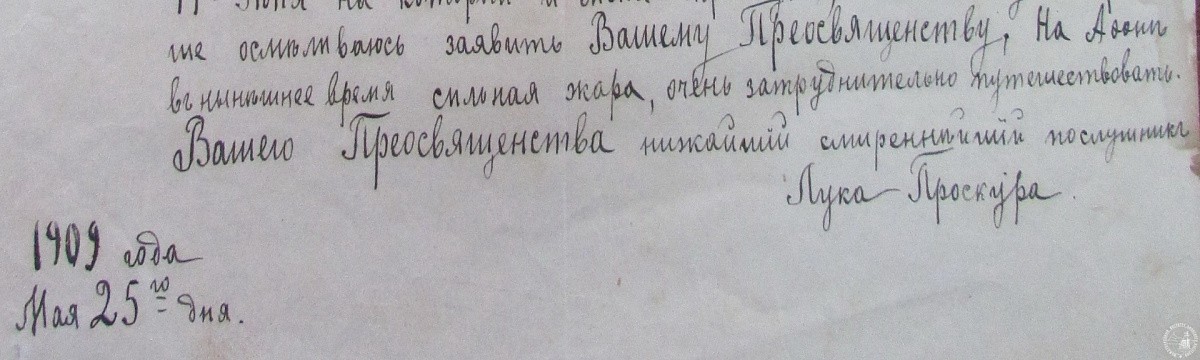 Іюня на который и
же осмѣливаюсь заявить Вашему Преосвященству, На Аѳонѣ
въ нынѣшнее время сильная жара, очень затруднительно путешествовать.
Вашего Преосвященства нижайшій смиреннѣйшій послушникъ
Лука Проскура.
1909 года
Мая 25го дня.